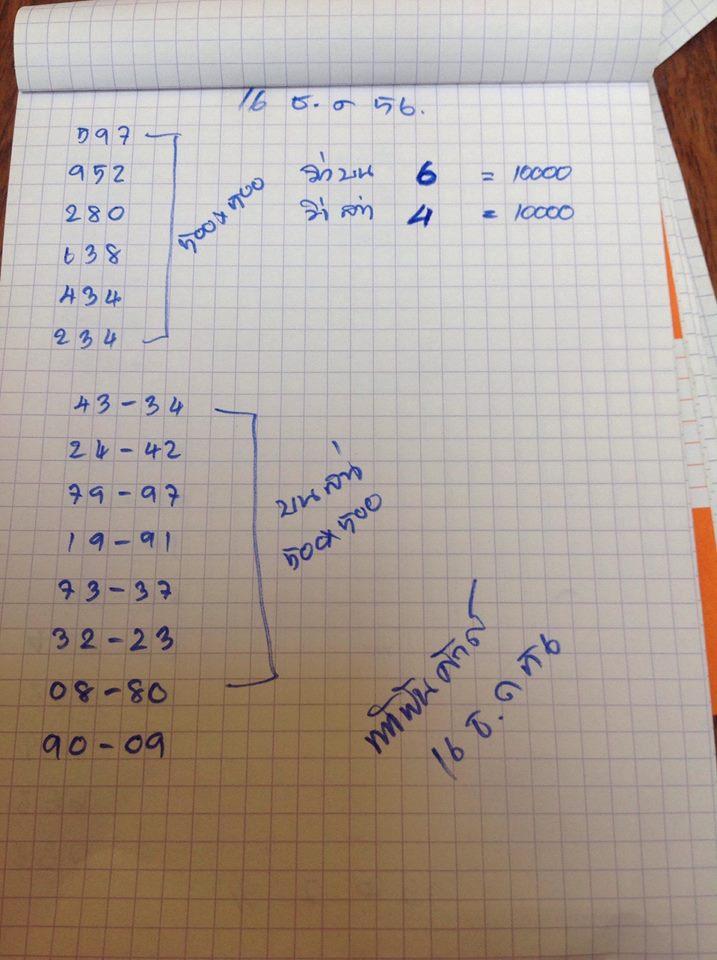 16 ธ.ค 56.
597
952
280
638
434
234
500x500
วิ่งบน 6 = 10000
วิ่งล่าง 4 = 10000
43-34
24-42
79-97
19-91
73-37
32-23
08-80
90-09
บนล่าง
500x500
16 ธ.ค 56